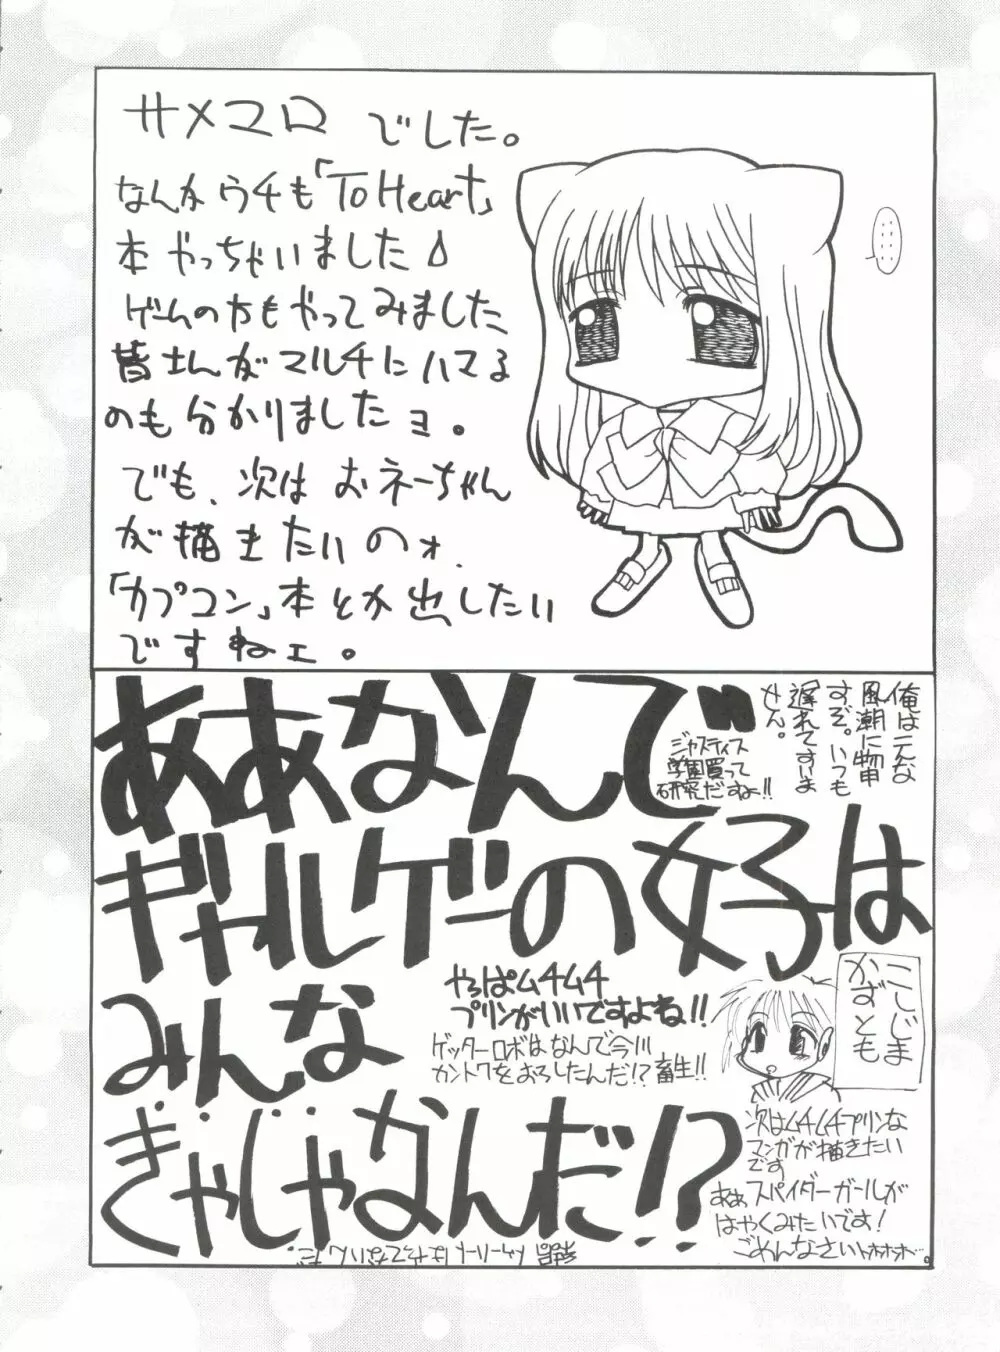 サメマロ でした。
なんかウチも「To Heart」
本やっちゃいました
ゲームの方もやってみました
皆さんがマルチにハマる
のも分かりましたヨ。
でも、次はおネーちゃん
が描きたいのォ、
「カプコン」本とか出したい
ですねェ。
………
ああなんで
ギャルゲーの女子は
みんな
ぎゃしゃなんだ!?
俺はこんな
風潮に物申
すぞ。いつも
遅れてすいま
せん。
ジャスティス
学園買って
研究だすわ!!
やっぱムチムチ
プリンがいいですよね!!
ゲッターロボはなんで今川
カントクをおろしたんだ!?畜生!!
こしじま
かずとも
次はムチムチプリンな
マンガが描きたい
です
ああスパイダーガールが
はやくみたいです!
ごめんなさいトホホホ…。